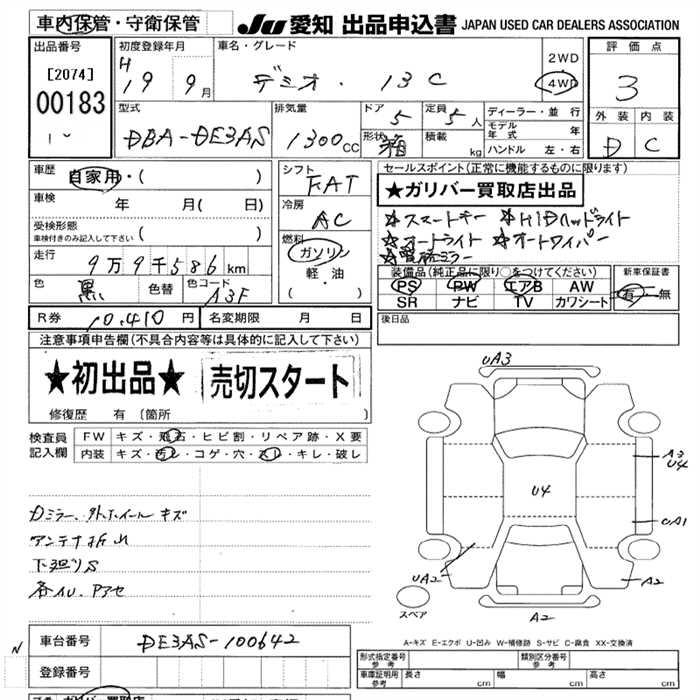 車内保管・守衛保管
JU 愛知 出品申込書 JAPAN USED CAR DEALERS ASSOCIATION
出品番号
[2074]
00183
初度登録年月
H 19 9月
車名・グレード
デミオ・13C
2WD
4WD
評価点
3
外装 内装
D C
型式
DBA-DE3AS
排気量
1300cc
ドア
5
定員
5人
形状
箱
積載
kg
ディーラー・並行
モデル年式 年
ハンドル 左・右
車歴
自家用・( )
車検 年 月( 日)
受検形態
車検付きのみ記入して下さい ( )
走行
9万9千586km
色
黒
色替
色コード
A3F
シフト
FAT
冷房
AC
燃料
ガソリン
軽・油
( ・ )
セールスポイント(正常に機能するものに限ります)
★ガリバー買取店出品
☆スマートキー ☆HIDヘッドライト
☆オートライト ☆オートワイパー
☆電格ミラー
装備品(純正品に限り○をつけてください)
PS PW エアB AW
SR ナビ TV カワシート
新車保証書
有・無
R券 10,410円
名変期限 月 日
後日品
注意事項申告欄(不具合内容等は具体的に記入して下さい)
★初出品★
売切スタート
修復歴 有 (箇所 )
検査員
記入欄
FW キズ・飛石・ヒビ割・リペア跡・X要
内装 キズ・汚レ・コゲ・穴・スレ・キレ・破レ
Dミラー、外ホイール キズ
アンテナ折れ
下廻りS
各イU、Pアセ
UA3
A3
U4
U4
UA1
UA2
A2
A2
スペア
A-キズ E-エクボ U-凹み W-補修跡 S-サビ C-腐食 XX-交換済
N
車台番号 DE3AS-100642
登録番号
形式指定番号
参考
類別区分番号
参考
車庫証明用
参考
長さ cm
幅 cm
高さ cm
ガリバー買取店